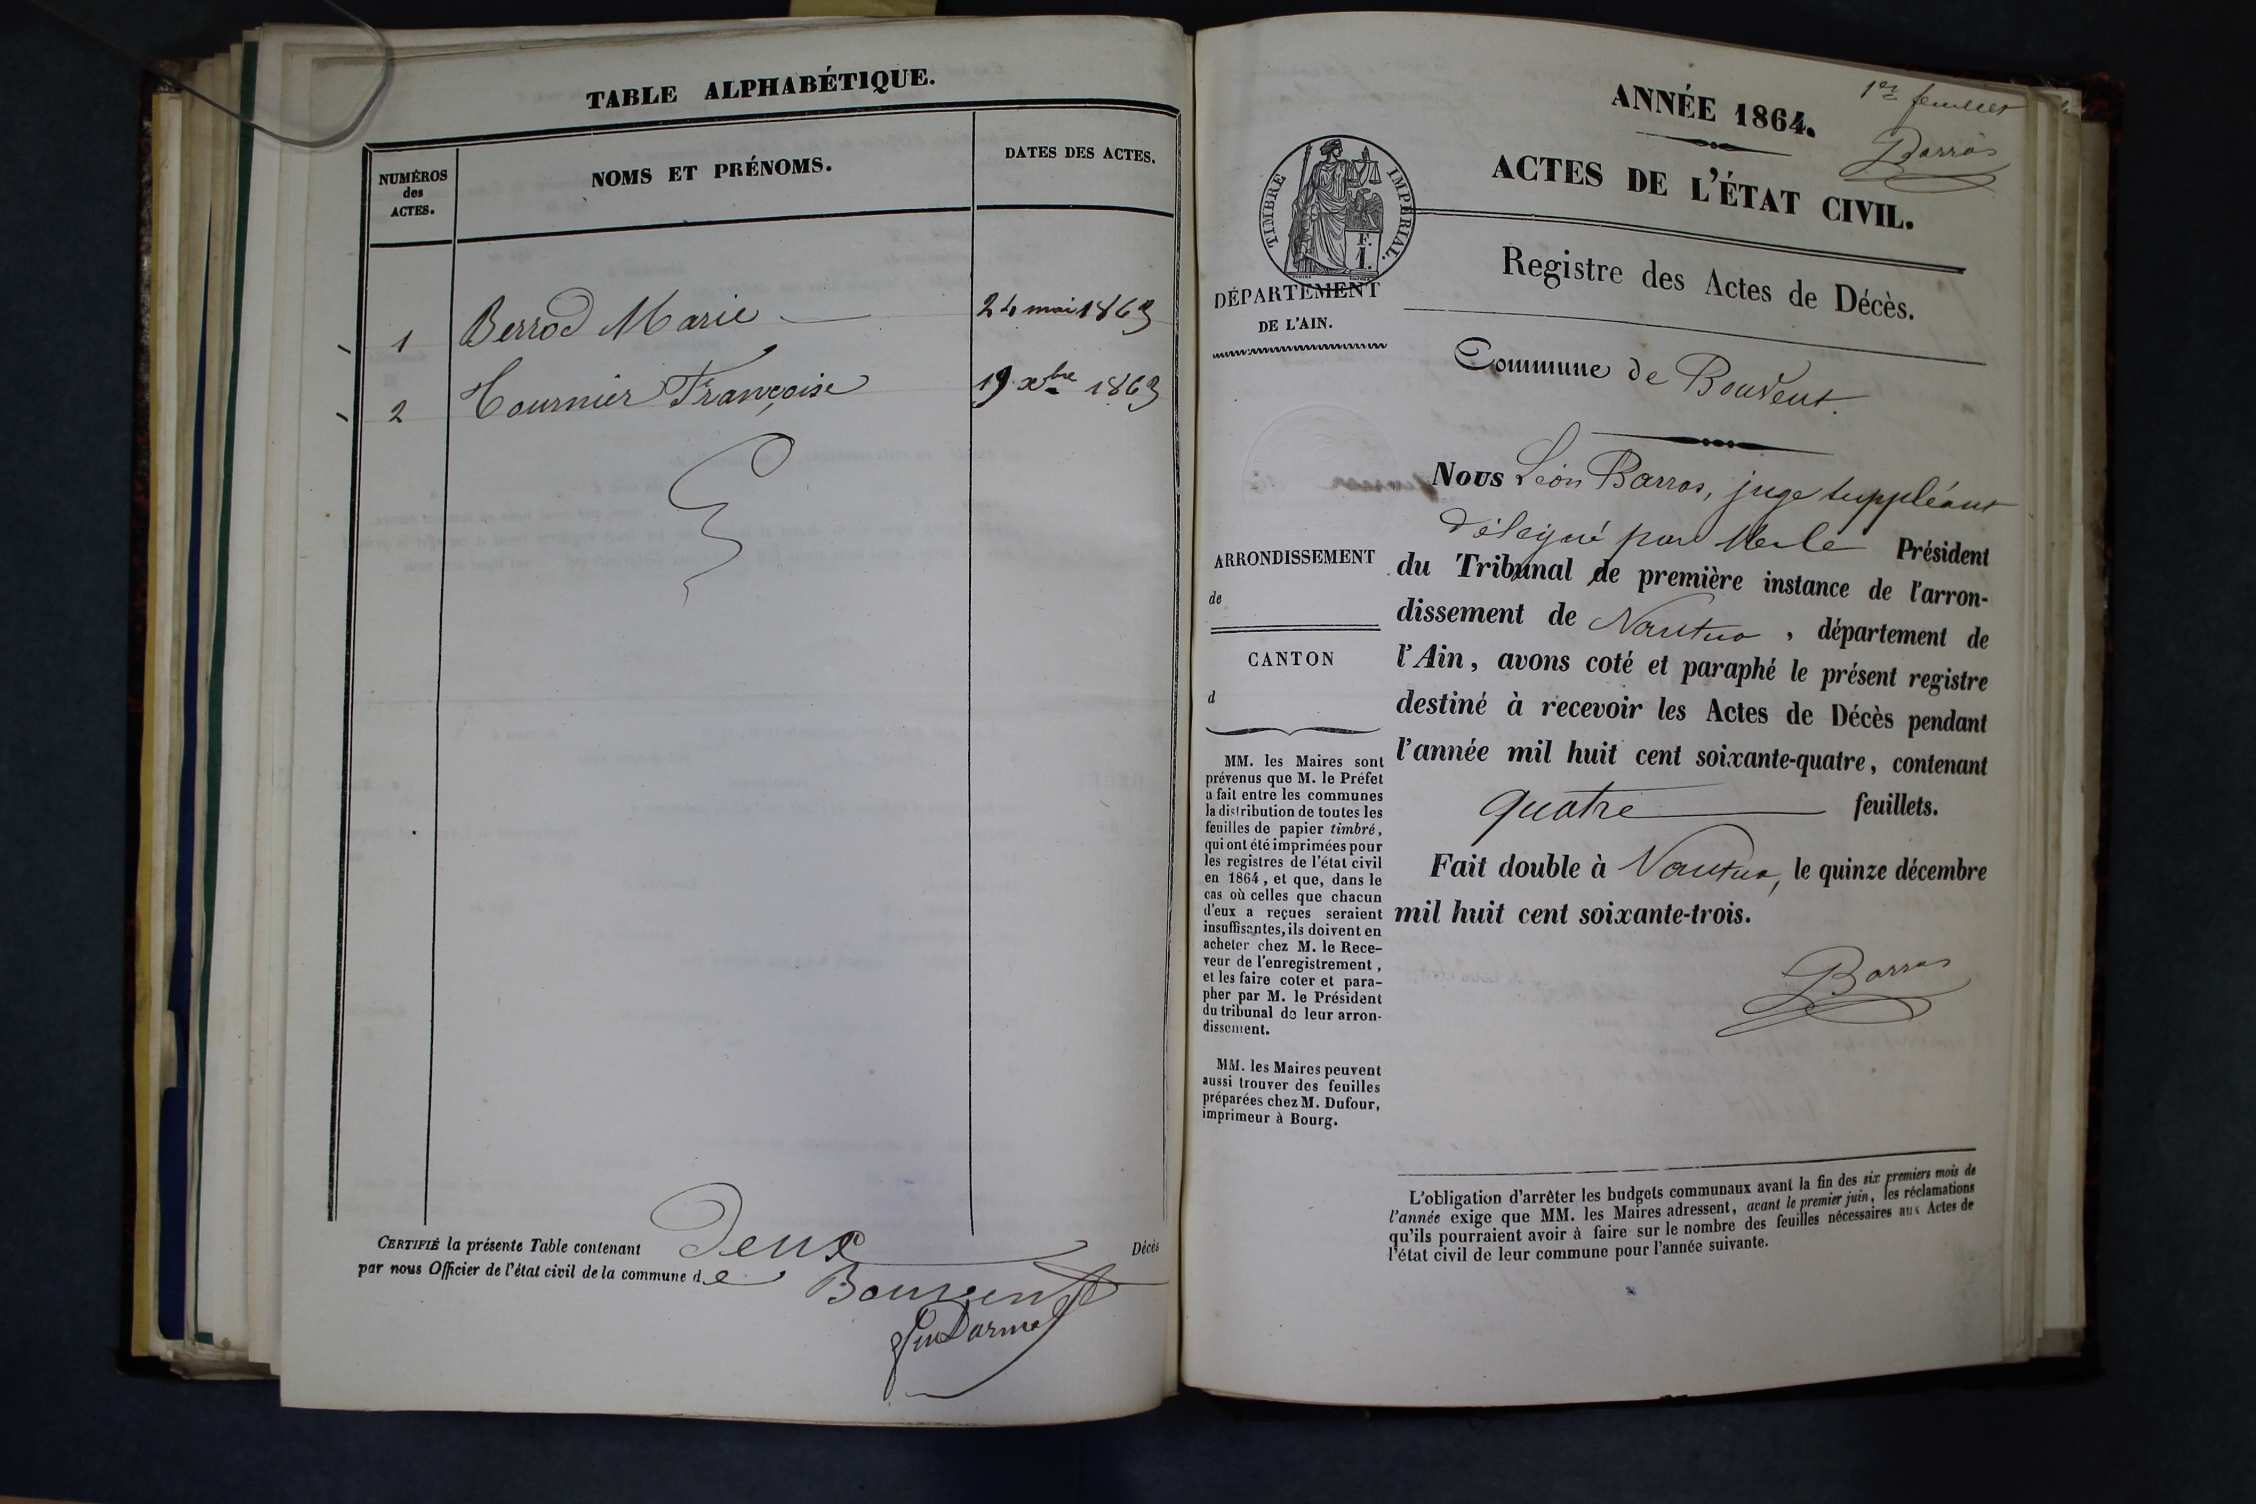 TABLE ALPHABÉTIQUE.
NUMÉROS
des
ACTES.
NOMS ET PRÉNOMS.
DATES DES ACTES.
1 Berrod Marie 24 mai 1863
2 Tournier Françoise 19 Xbre 1863
CERTIFIÉ la présente Table contenant Deux Décès
par nous Officier de l'état civil de la commune de Bouvent
1er feuillet
Barras
ANNÉE 1864.
ACTES DE L'ÉTAT CIVIL.
TIMBRE IMPÉRIAL.
F.
I.
Registre des Actes de Décès.
DÉPARTEMENT
DE L'AIN.
Commune de Bouvent.
ARRONDISSEMENT
de
CANTON
d
MM. les Maires sont
prévenus que M. le Préfet
a fait entre les communes
la distribution de toutes les
feuilles de papier timbré,
qui ont été imprimées pour
les registres de l'état civil
en 1864, et que, dans le
cas où celles que chacun
d'eux a reçues seraient
insuffisantes, ils doivent en
acheter chez M. le Rece-
veur de l'enregistrement,
et les faire coter et para-
pher par M. le Président
du tribunal de leur arron-
dissement.
MM. les Maires peuvent
aussi trouver des feuilles
préparées chez M. Dufour,
imprimeur à Bourg.
Nous Léon Barras, juge suppléant
délégué par Mr le Président
du Tribunal de première instance de l'arron-
dissement de Nantua, département de
l'Ain, avons coté et paraphé le présent registre
destiné à recevoir les Actes de Décès pendant
l'année mil huit cent soixante-quatre, contenant
quatre feuillets.
Fait double à Nantua, le quinze décembre
mil huit cent soixante-trois.
Barras
L'obligation d'arrêter les budgets communaux avant la fin des six premiers mois de
l'année exige que MM. les Maires adressent, avant le premier juin, les réclamations
qu'ils pourraient avoir à faire sur le nombre des feuilles nécessaires aux Actes de
l'état civil de leur commune pour l'année suivante.